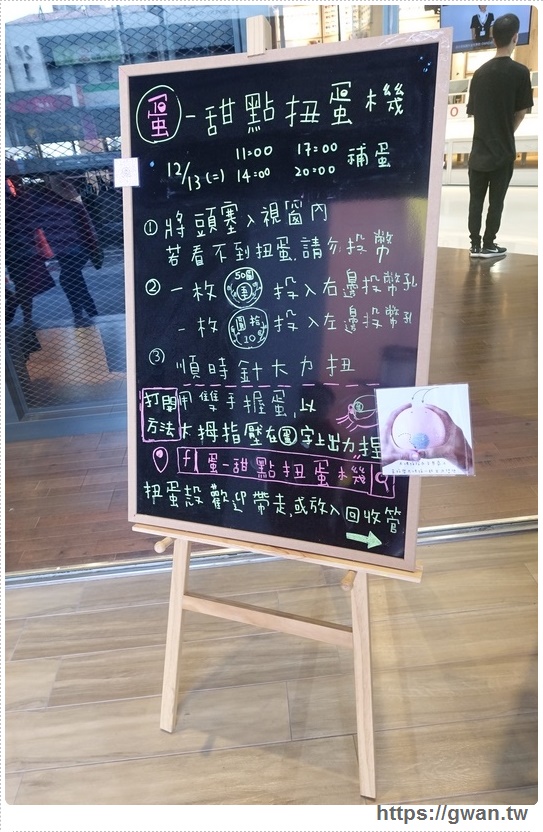 蛋-甜點扭蛋機
11:00 17:00
12/13(二) 14:00 20:00 補蛋
① 將頭塞入視窗內
若看不到扭蛋,請勿投幣
② 一枚 50圓 投入右邊投幣孔
一枚 圓拾 10 投入左邊投幣孔
③ 順時針大力扭
打開方法 用雙手握蛋,以
大拇指壓在蛋字上出力捏
f 蛋-甜點扭蛋機
扭蛋殼歡迎帶走,或放入回收管
https://gwan.tw